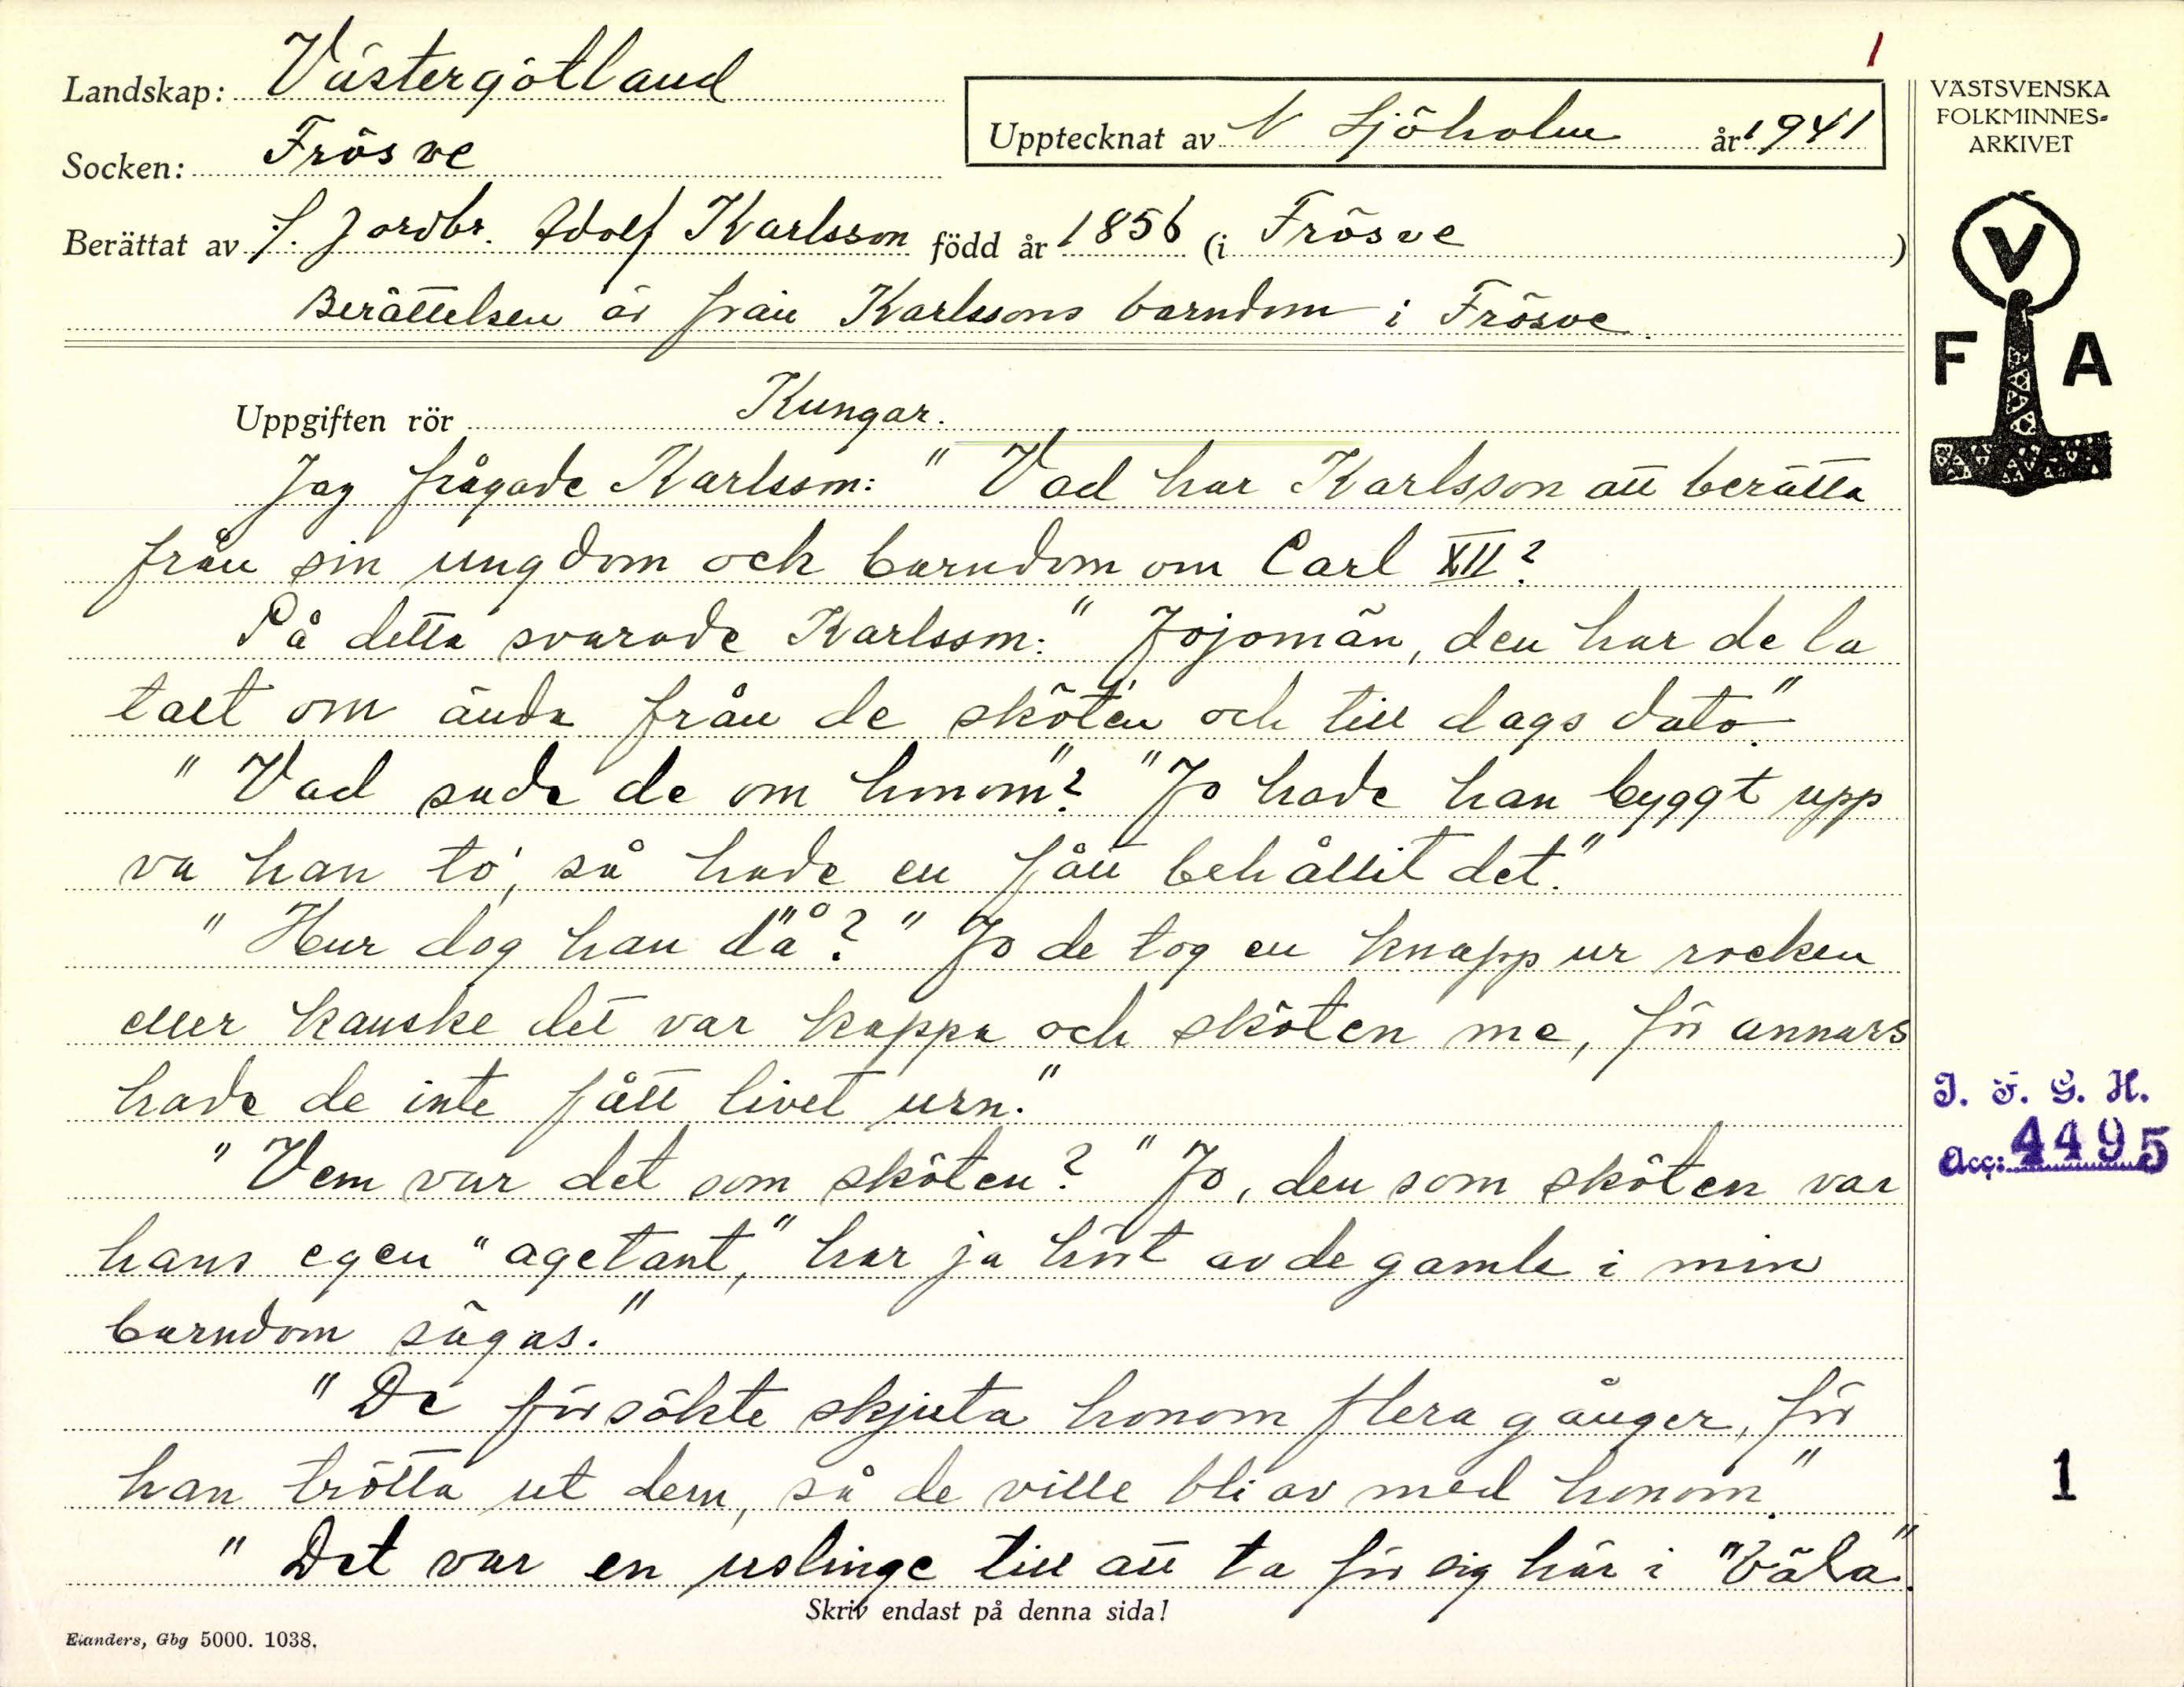 1
Landskap: Västergötland
Socken: Frösve
Upptecknat av N Sjöholm år 1941
Berättat av f. Jordbr. Adolf Karlsson född år 1856 (i Frösve)
Berättelsen är från Karlssons barndom i Frösve.
Uppgiften rör Kungar.
Jag frågade Karlsson: " Vad har Karlsson att berätta
från sin ungdom och barndom om Carl XII?
På detta svarade Karlsson: " Jojomän, den har de la
talt om ända från de sköt'en och till dags dato."
" Vad sade de om honom"? "Jo hade han byggt upp
va han to', så hade en fått behållit det."
" Hur dog han då"? " Jo de tog en knapp ur rocken
eller kanske det var kappa och sköten me, för annars
hade de inte fått livet urn."
" Vem var det som sköten? " Jo, den som sköten var
hans egen "agetant," har ja hört av de gamle i min
barndom sägas."
" De försökte skjuta honom flera gånger, för
han trötta ut dem, så de ville bli av med honom."
" Det var en uslinge till att ta för sig här i "Väla".
Skriv endast på denna sida!
Elanders, Gbg 5000. 1038.
VÄSTSVENSKA
FOLKMINNES-
ARKIVET
V
F A
I. F. G. H.
Acc: 4495
1